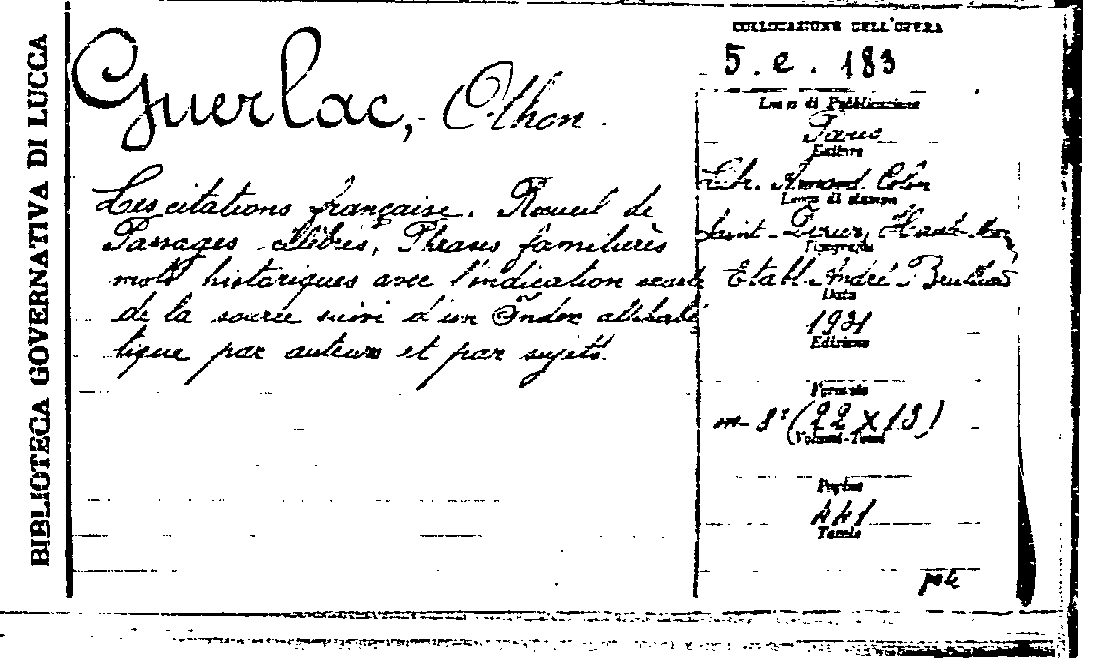 BIBLIOTECA GOVERNATIVA DI LUCCA
Guerlac, Othon.
Les citations française. Recueil de
Passages célèbres, Phrases familières
mots historiques avec l'indication exacte
de la source suivi d'un Index alphabé
tique par auteurs et par sujets.
COLLOCAZIONE DELL'OPERA
5. e. 183
Luogo di Pubblicazione
Paris
Editore
Libr. Armand Colin
Luogo di stampa
Saint-Dizier, Haut-
Tipografia
Etabl. André Brulliard
Data
1931
Edizione
Formato
in-8° (22 x 13)
(Volumi-Tomi
Pagine
441
Tavole